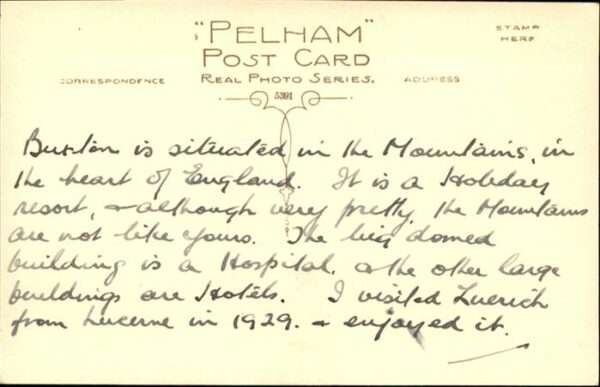 "PELHAM"
POST CARD
REAL PHOTO SERIES.
CORRESPONDENCE
ADDRESS
STAMP
HERE
Buxton is situated in the Mountains, in
the heart of England. It is a Holiday
resort, & although very pretty, the Mountains
are not like yours. The big domed
building is a Hospital, & the other large
buildings are Hotels. I visited Zuerich
from Lucerne in 1929. & enjoyed it.